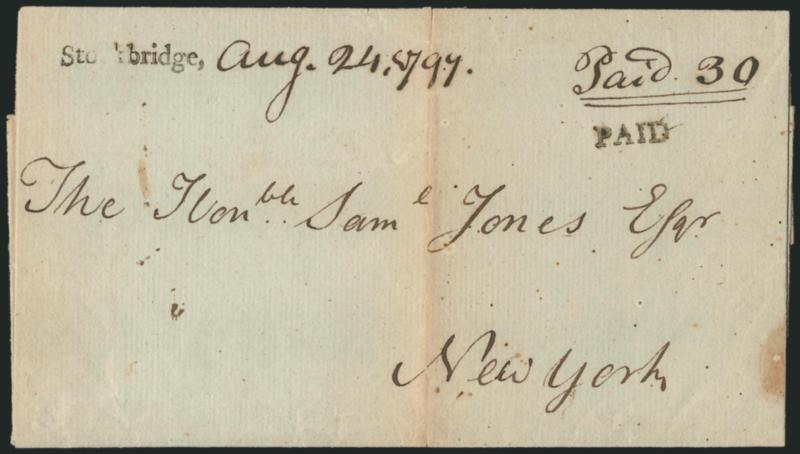 Stockbridge, Aug. 24, 1797. Paid 30
PAID
The Honble Saml Jones Esqr
New York